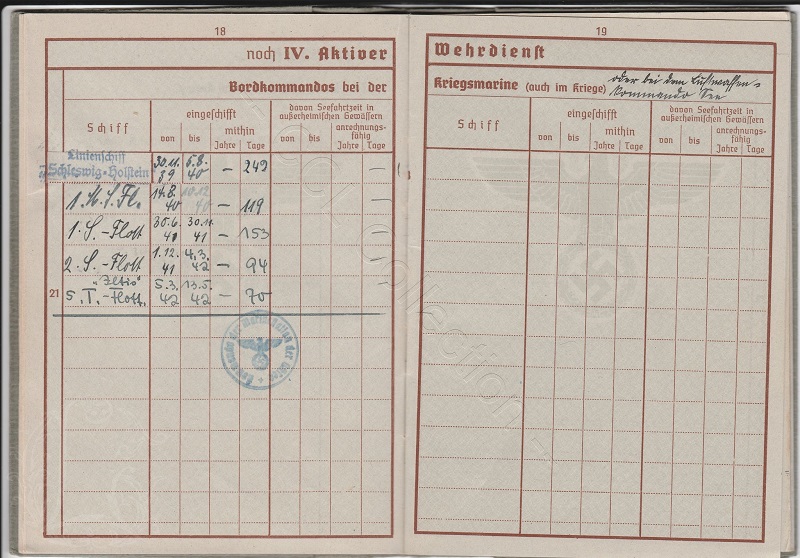 18
noch IV. Aktiver
Bordkommandos bei der
Schiff
eingeschifft
von bis mithin
Jahre Tage
davon Seefahrtzeit in
außerheimischen Gewässern
von bis anrechnungs-
fähig
Jahre Tage
Linienschiff
Schleswig-Holstein 30.11. 39 6.8. 40 – 249 –
1. M.S.Fl. 14.8. 40 10.12 40 – 119 –
1. S.-Flott 30.6. 41 30.11. 41 – 153 –
2. S.-Flott 1.12. 41 4.3. 42 – 94
"Iltis"
21 5. T.-Flott. 5.3. 42 13.5. 42 – 70
19
Wehrdienst
Kriegsmarine (auch im Kriege) oder bei dem Luftwaffen-
kommando See
Schiff
eingeschifft
von bis mithin
Jahre Tage
davon Seefahrtzeit in
außerheimischen Gewässern
von bis anrechnungs-
fähig
Jahre Tage
collection